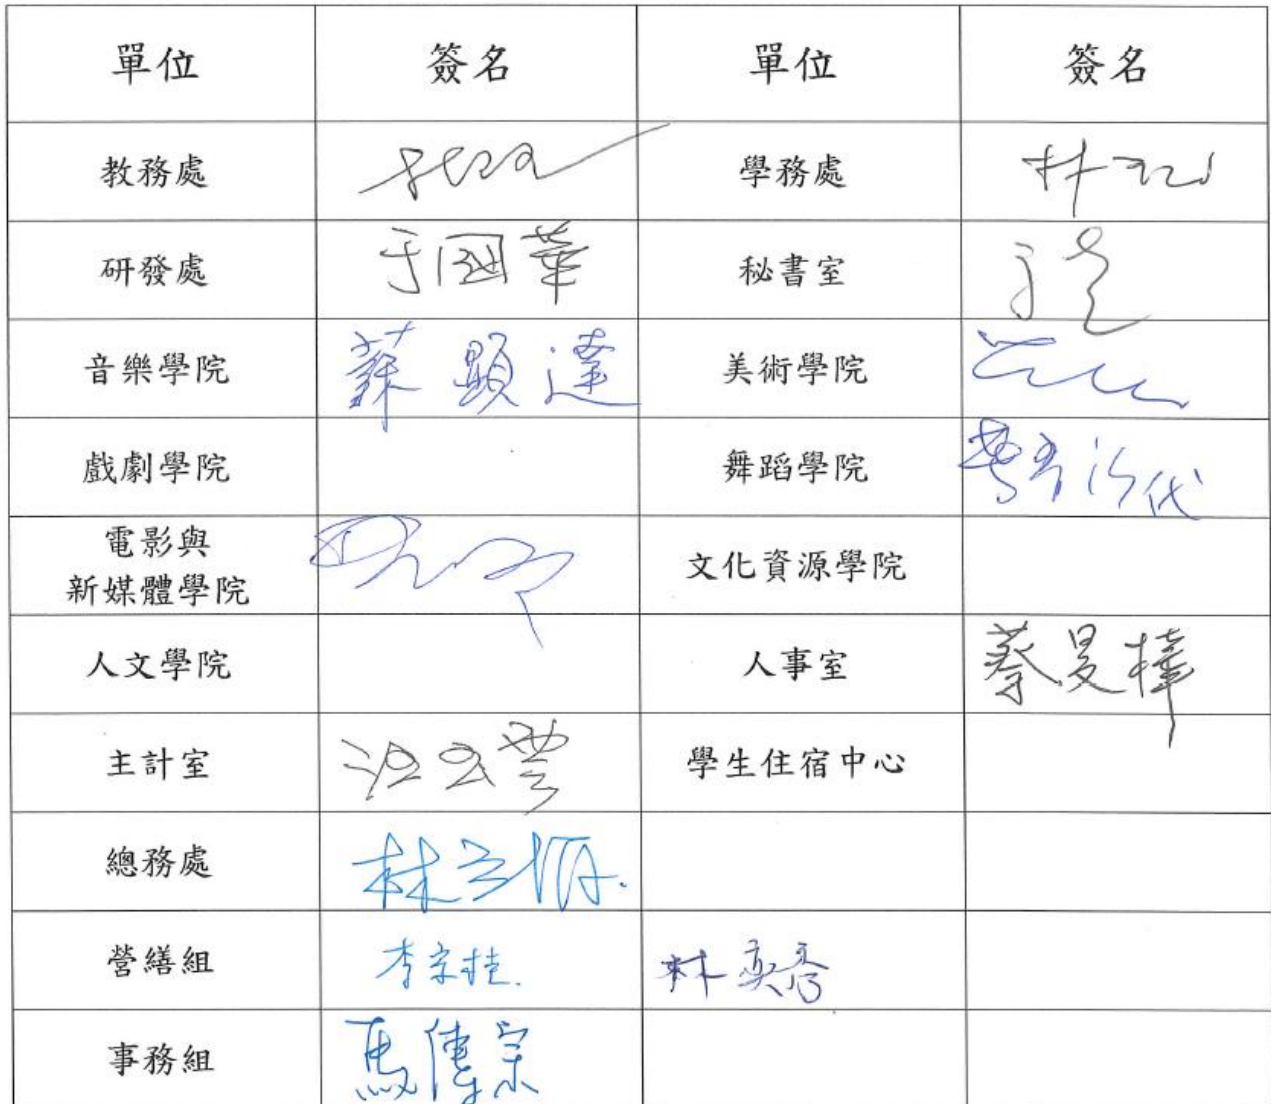 單位 簽名 單位 簽名
教務處 學務處
研發處 于國華 秘書室
音樂學院 蘇顯達 美術學院
戲劇學院 舞蹈學院
電影與
新媒體學院 文化資源學院
人文學院 人事室 蔡旻樺
主計室 學生住宿中心
總務處
營繕組 李宗桂. 林奕秀
事務組 馬偉宗